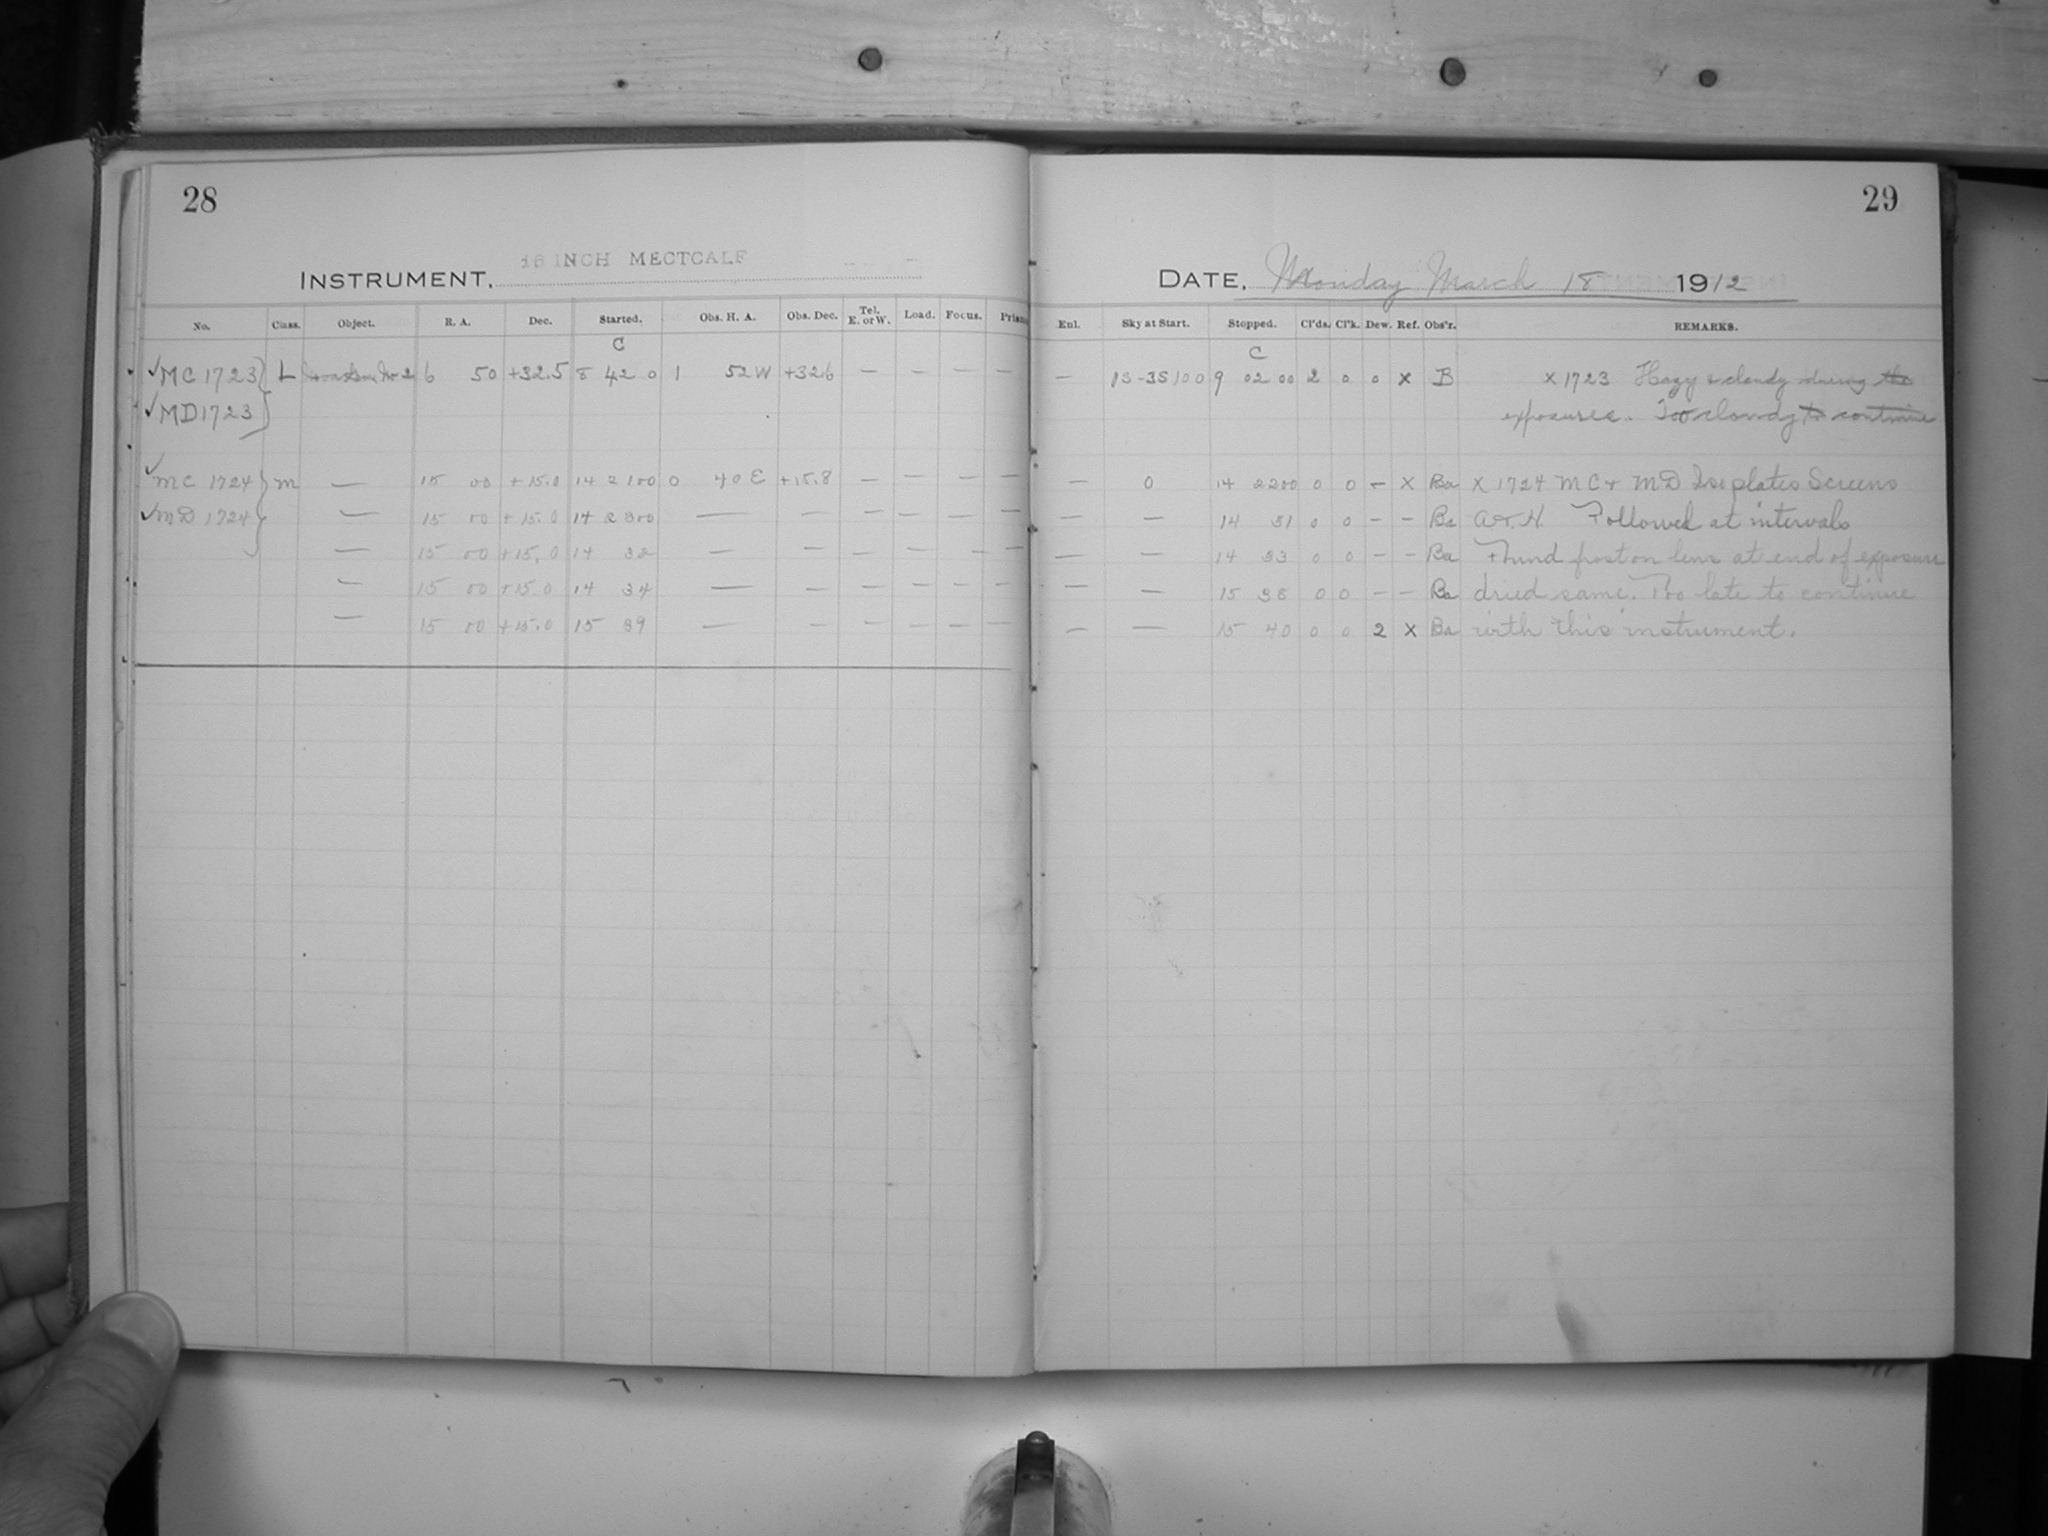 28
29
16 INCH MECTCALF
INSTRUMENT.
DATE. Monday March 18 1912
No. Class. Object. R. A. Dec. Started. Obs. H. A. Obs. Dec. Tel. E. or W. Load. Focus. Prism Enl. Sky at Start. Stopped. Cl'ds. Cl'k. Dew. Ref. Obs'r. REMARKS.
C C
✓MC 1723 L No 2 6 50 +32.5 8 42 0 1 52 W +32.6 — — — — — 9 02 00 2 0 0 x B x 1723 Hazy & cloudy during the
✓MD 1723 exposures. Too cloudy to continue
✓MC 1724 m — 15 00 +15.0 14 2 100 0 40 E +15.8 — — — — — 0 14 2200 0 0 – x Ba x 1724 MC & MD Iso plates Screens
✓MD 1724 — 15 00 +15.0 14 2 300 — — — — — — — — 14 31 0 0 – – Ba & H. Followed at intervals
— 15 00 +15.0 14 32 — — — — — — — — 14 33 0 0 – – Ba Found frost on lens at end of exposure
— 15 00 +15.0 14 34 — — — — — — — — 15 38 0 0 – – Ba dried same. Too late to continue
— 15 00 +15.0 15 39 — — — — — — — — 15 40 0 0 2 x Ba with this instrument.